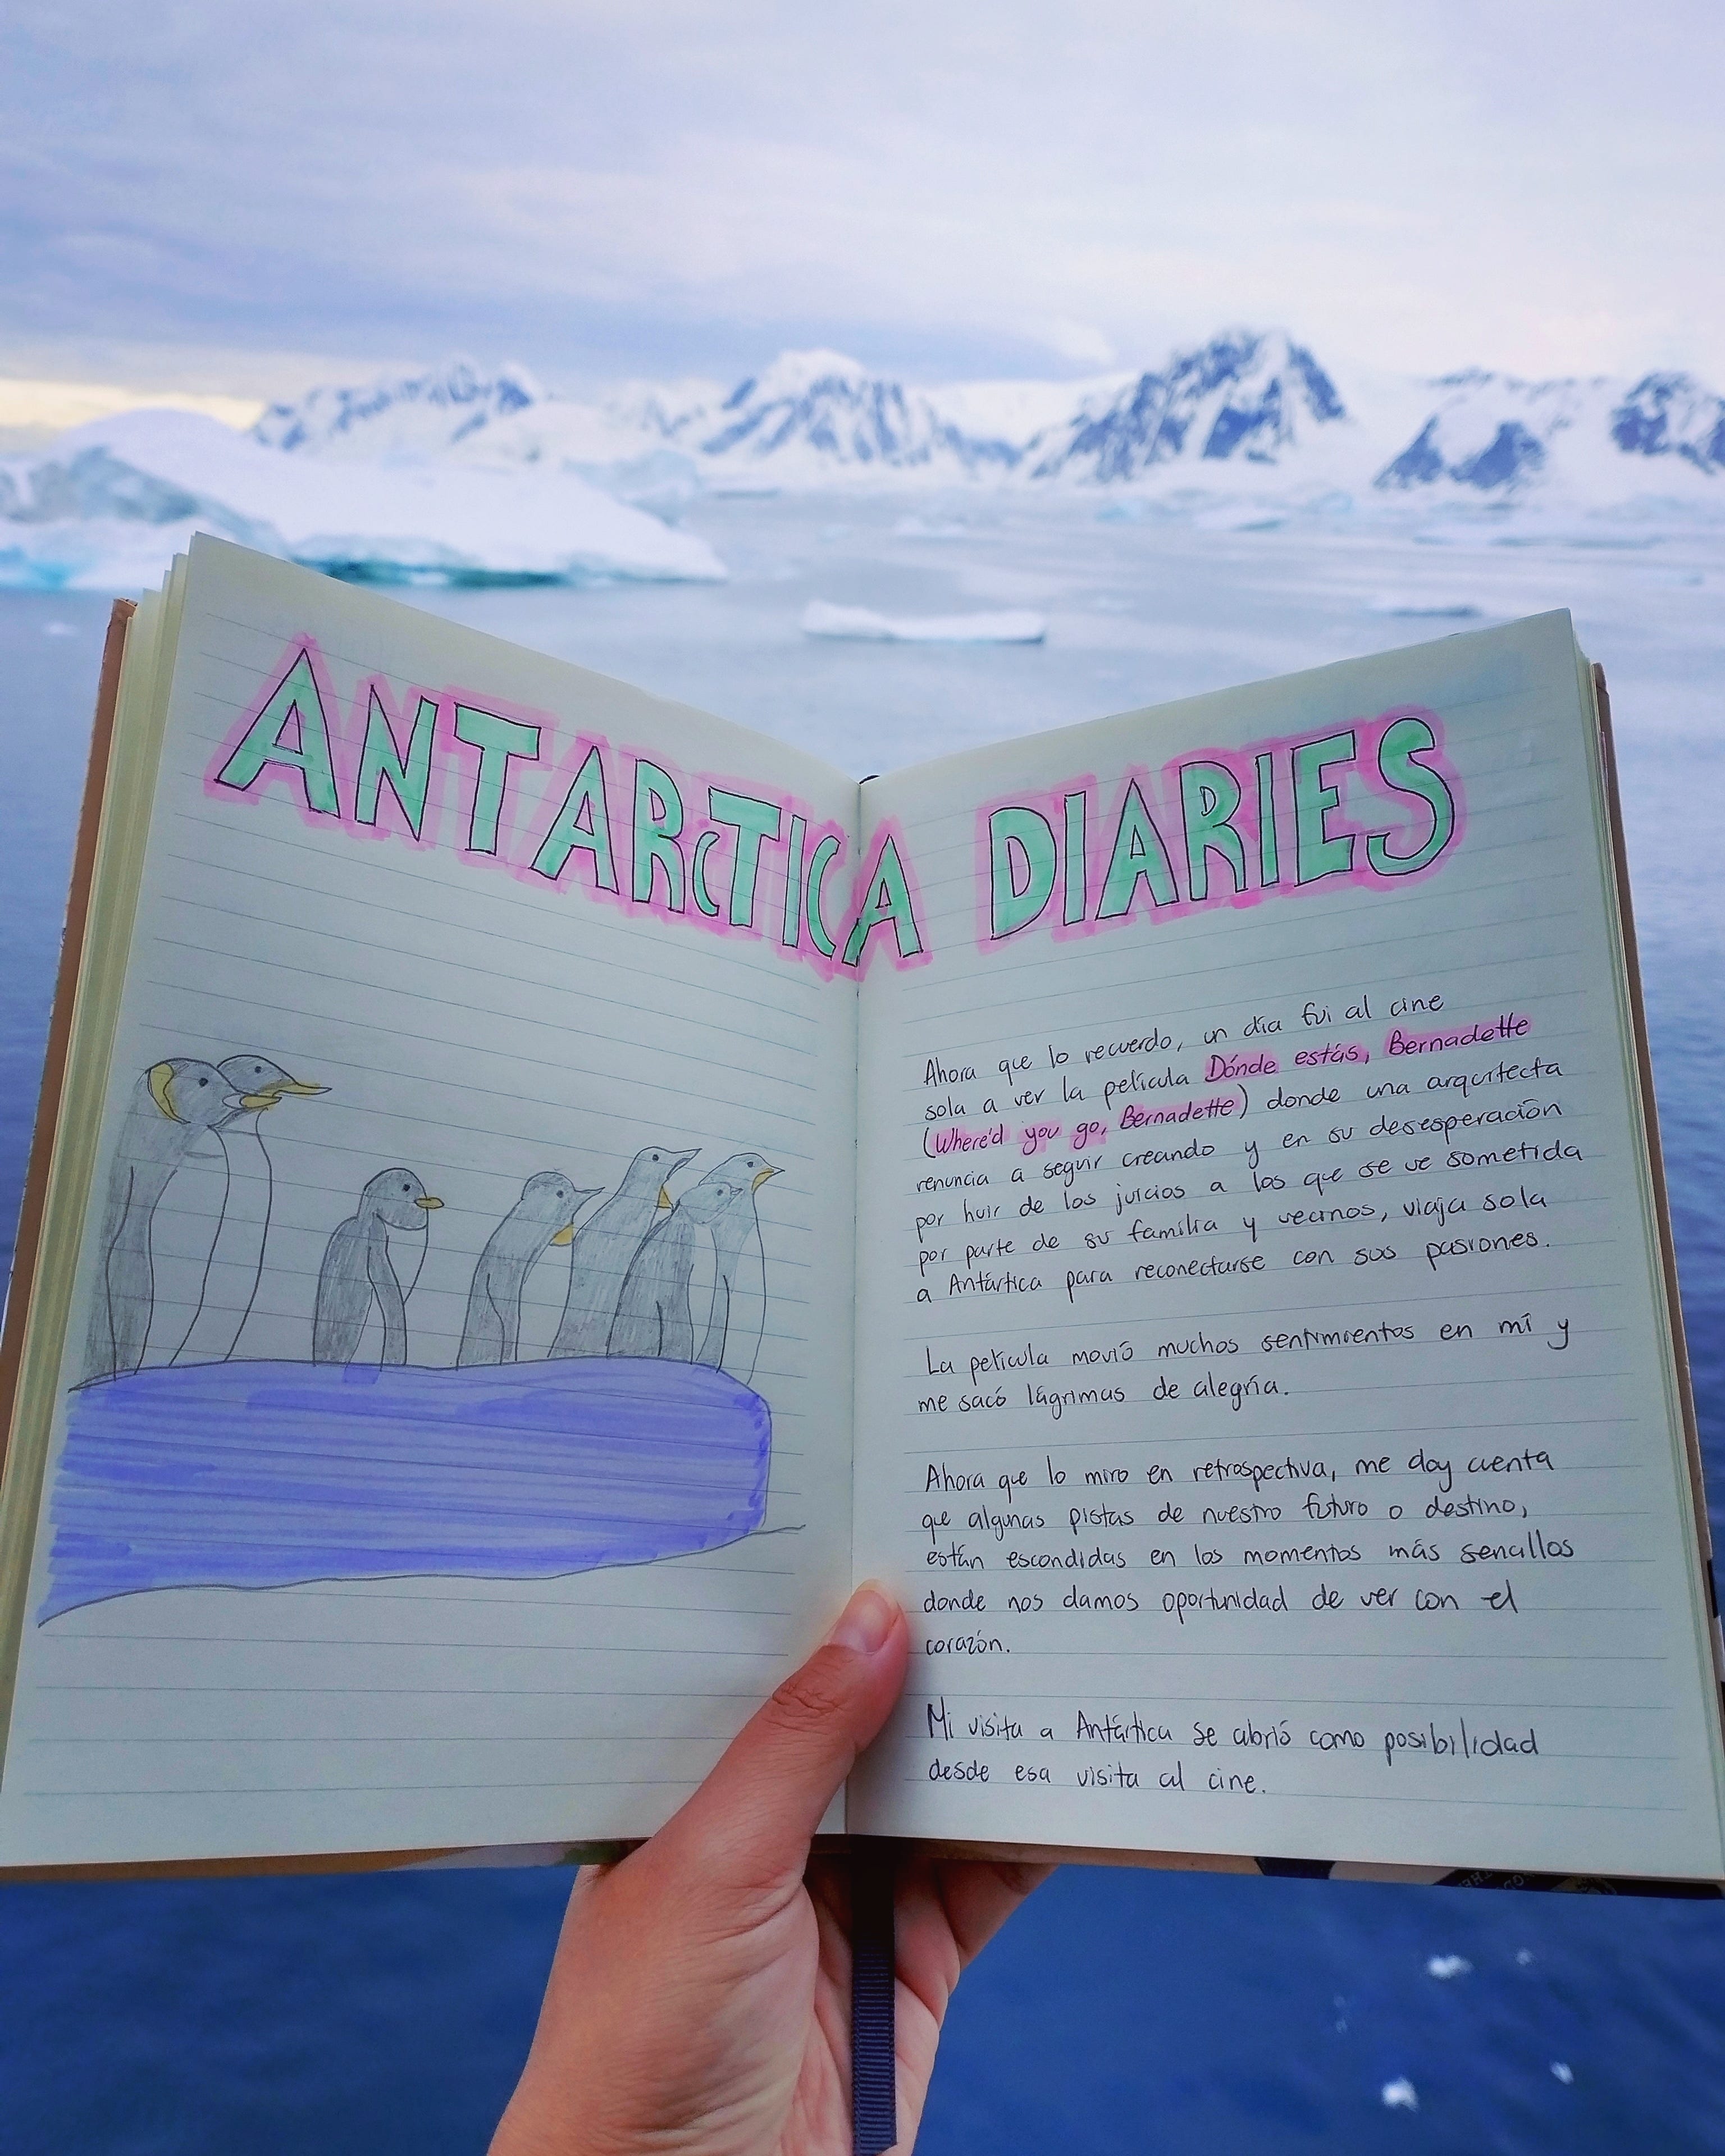 ANTARCTICA DIARIES
Ahora que lo recuerdo, un día fui al cine
sola a ver la película Dónde estás, Bernadette
(Where'd you go, Bernadette) donde una arquitecta
renuncia a seguir creando y en su desesperación
por huir de los juicios a los que se ve sometida
por parte de su familia y vecinos, viaja sola
a Antártica para reconectarse con sus pasiones.
La película movió muchos sentimientos en mí y
me sacó lágrimas de alegría.
Ahora que lo miro en retrospectiva, me doy cuenta
que algunas pistas de nuestro futuro o destino,
están escondidas en los momentos más sencillos
donde nos damos oportunidad de ver con el
corazón.
Mi visita a Antártica se abrió como posibilidad
desde esa visita al cine.